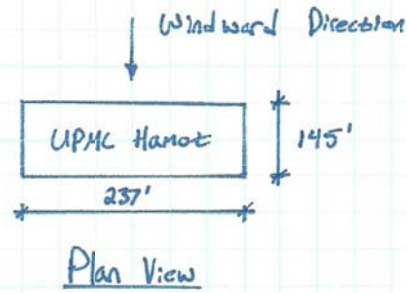 Windward Direction
UPMC Hamot
145'
237'
Plan View